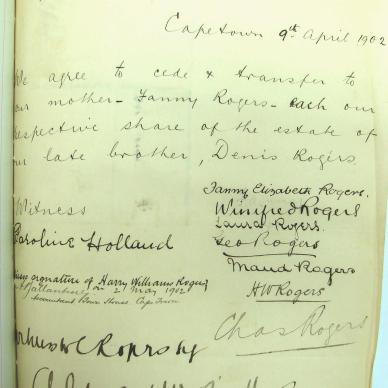 Capetown 9th April 1902
We agree to cede & transfer to
our mother - Fanny Rogers - each our
respective share of the estate of
our late brother, Denis Rogers.
Fanny Elizabeth Rogers.
Witness
Winifred Rogers
Laura Rogers.
Caroline Holland
Leo Rogers
Maud Rogers
signature of Harry Williams Rogers
2 May 1902
HWRogers
Accountant House Cape Town
Chas Rogers